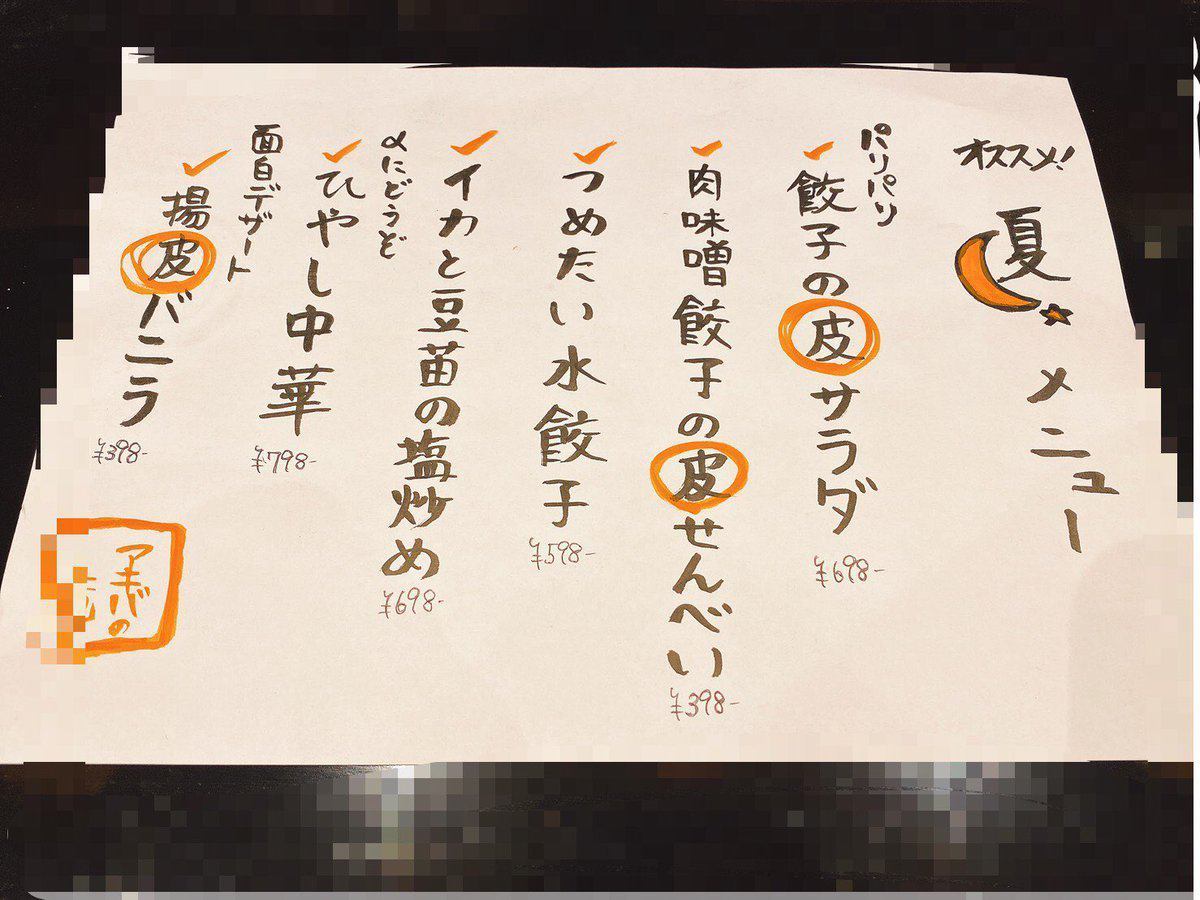 オススメ!
夏
メニュー
パリパリ
餃子の皮サラダ
¥698-
肉味噌餃子の皮せんべい
¥398-
つめたい水餃子
¥598-
イカと豆苗の塩炒め
¥698-
〆にどうぞ
ひやし中華
¥798-
面白デザート
揚皮バニラ
¥398-
アキバの